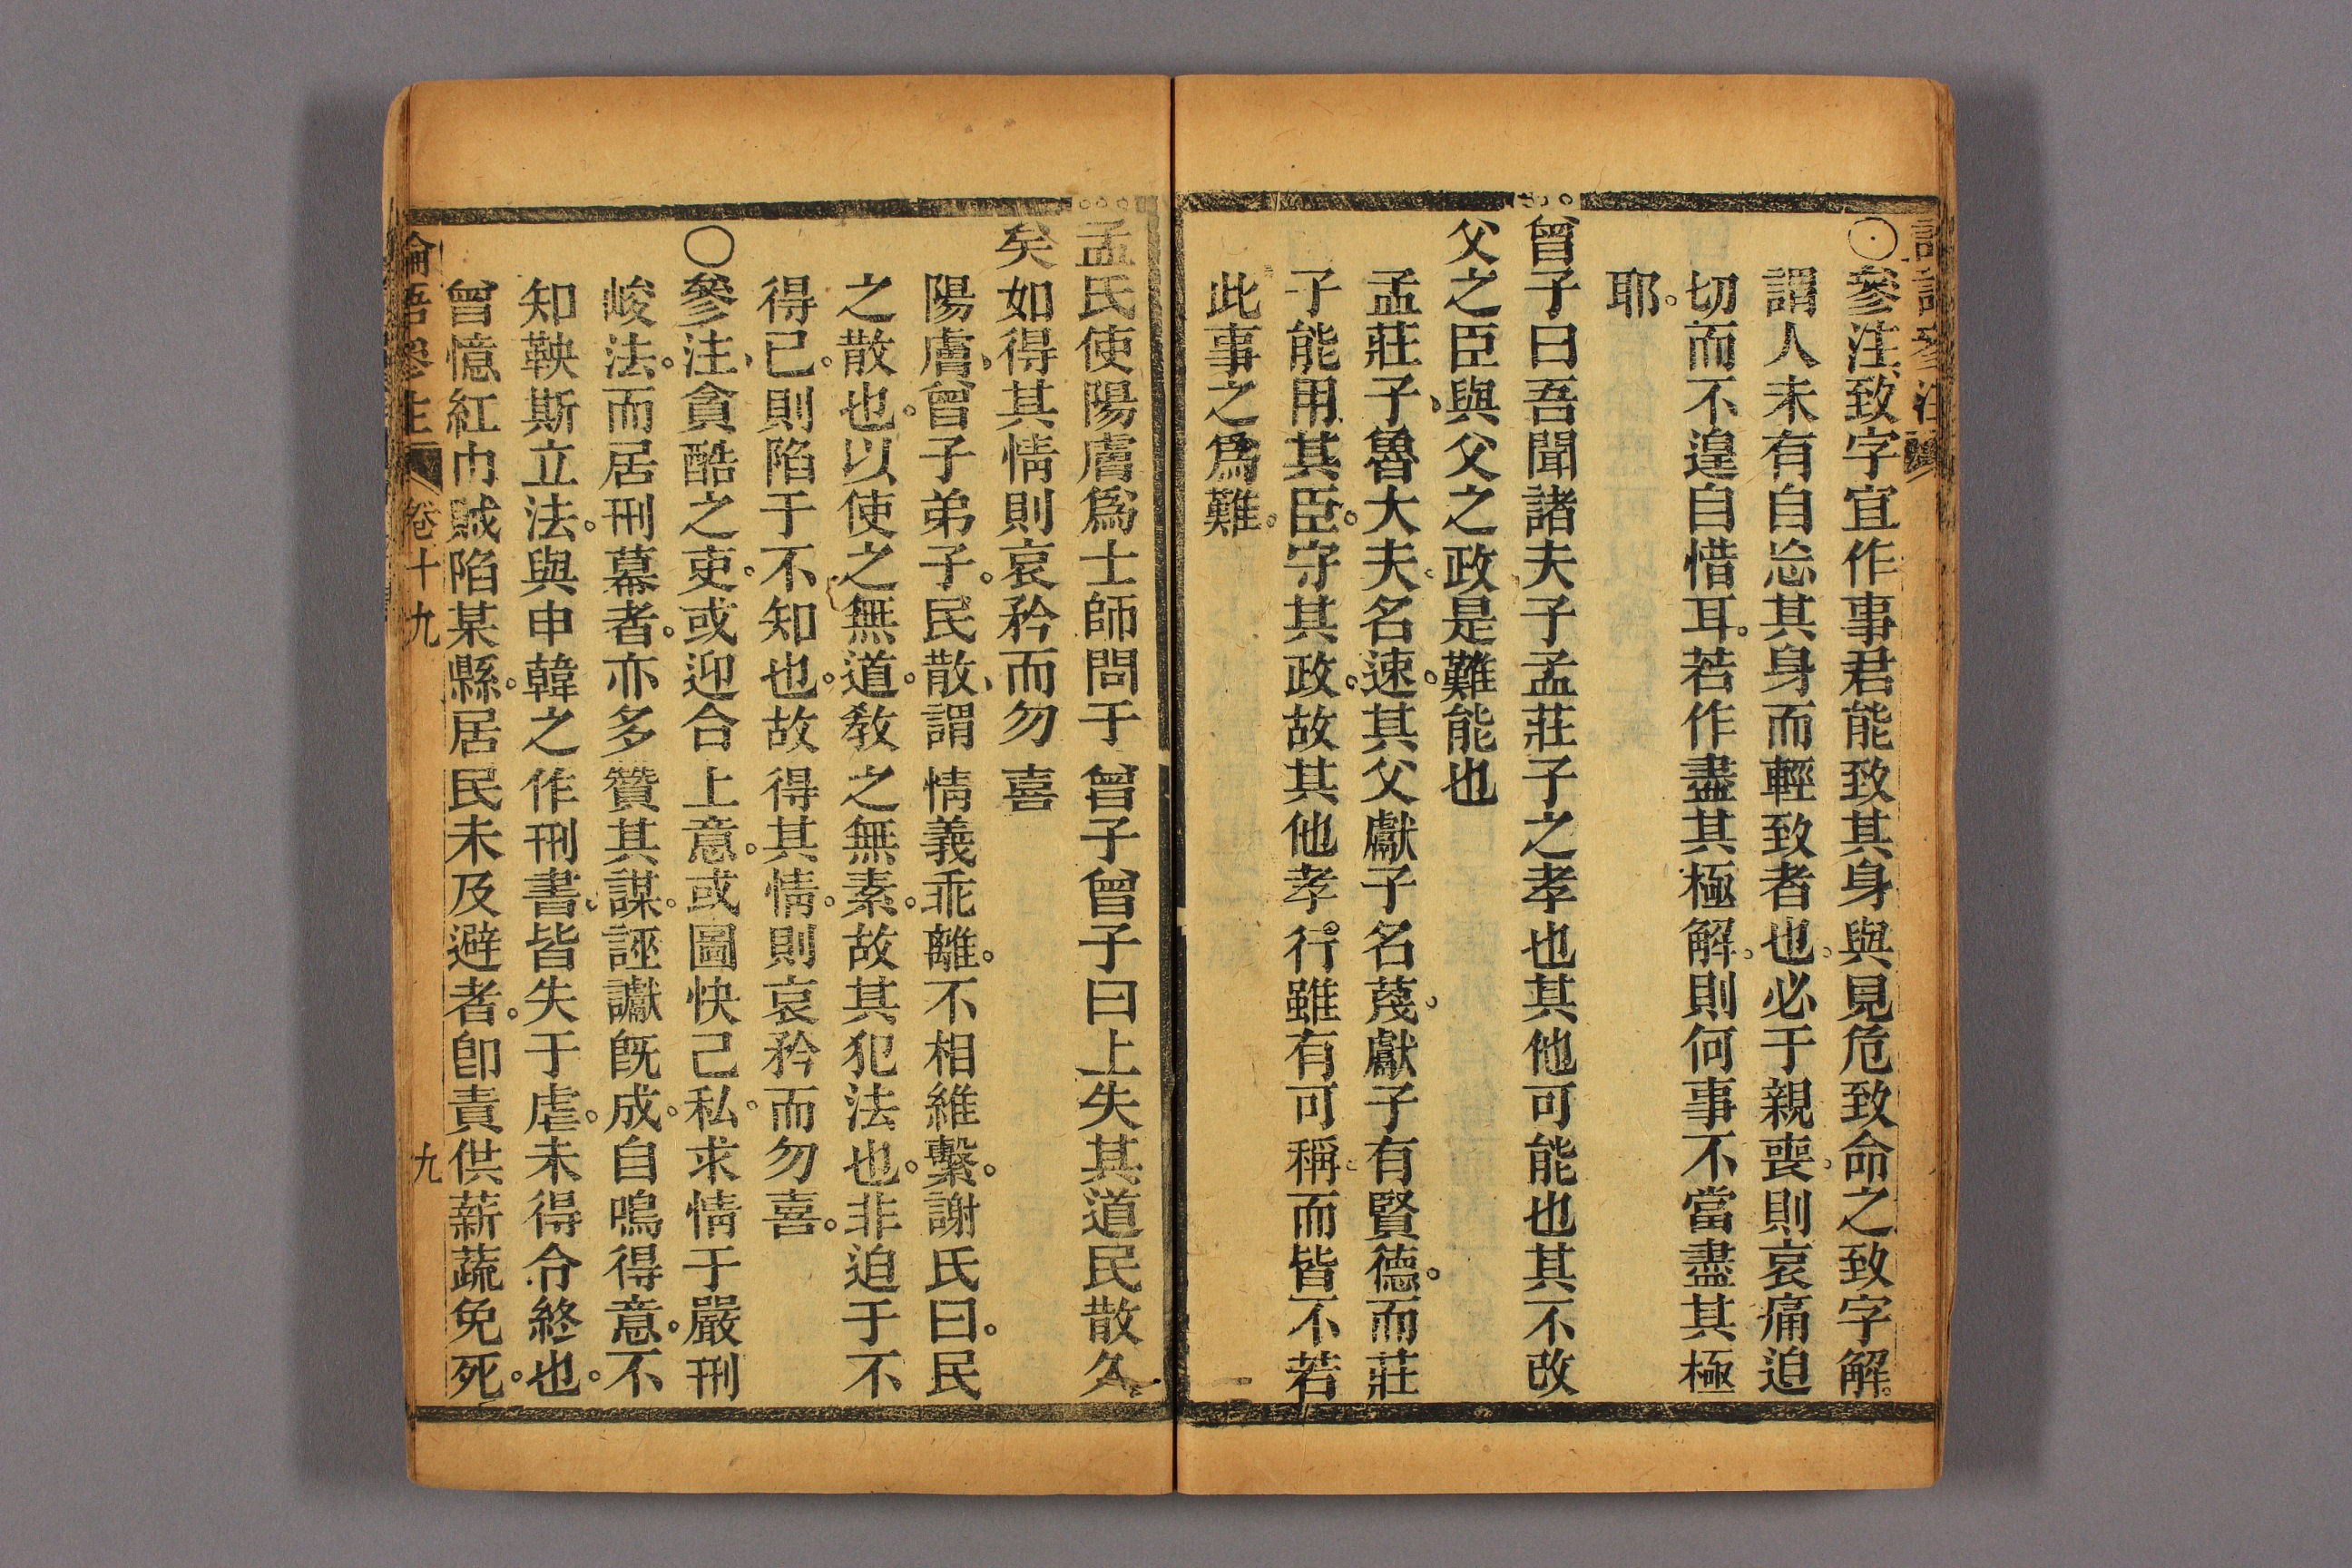 ⊙參注致字宜作事君能致其身與見危致命之致字解。
謂人未有自忘其身而輕致者也。必于親喪。則哀痛迫
切而不遑自惜耳。若作盡其極解。則何事不當盡其極
耶。
曾子曰吾聞諸夫子孟莊子之孝也其他可能也其不改
父之臣與父之政是難能也
孟莊子、魯大夫。名速。其父獻子名蔑。獻子有賢德。而莊
子能用其臣。守其政。故其他孝行。雖有可稱。而皆不若
此事之爲難。
孟氏使陽膚爲士師問于曾子曾子曰上失其道民散久
矣如得其情則哀矜而勿喜
陽膚、曾子弟子。民散、謂情義乖離。不相維繫。謝氏曰。民
之散也。以使之無道。教之無素。故其犯法也。非迫于不
得已。則陷于不知也。故得其情。則哀矜而勿喜。
○參注、貪酷之吏。或迎合上意。或圖快己私。求情于嚴刑
峻法。而居刑幕者。亦多贊其謀。誣讞旣成。自鳴得意。不
知鞅斯立法。與申韓之作刑書、皆失于虐。未得令終也。
曾憶紅巾賊陷某縣。居民未及避者。卽責供薪蔬免死。
論語參注 卷十九 九